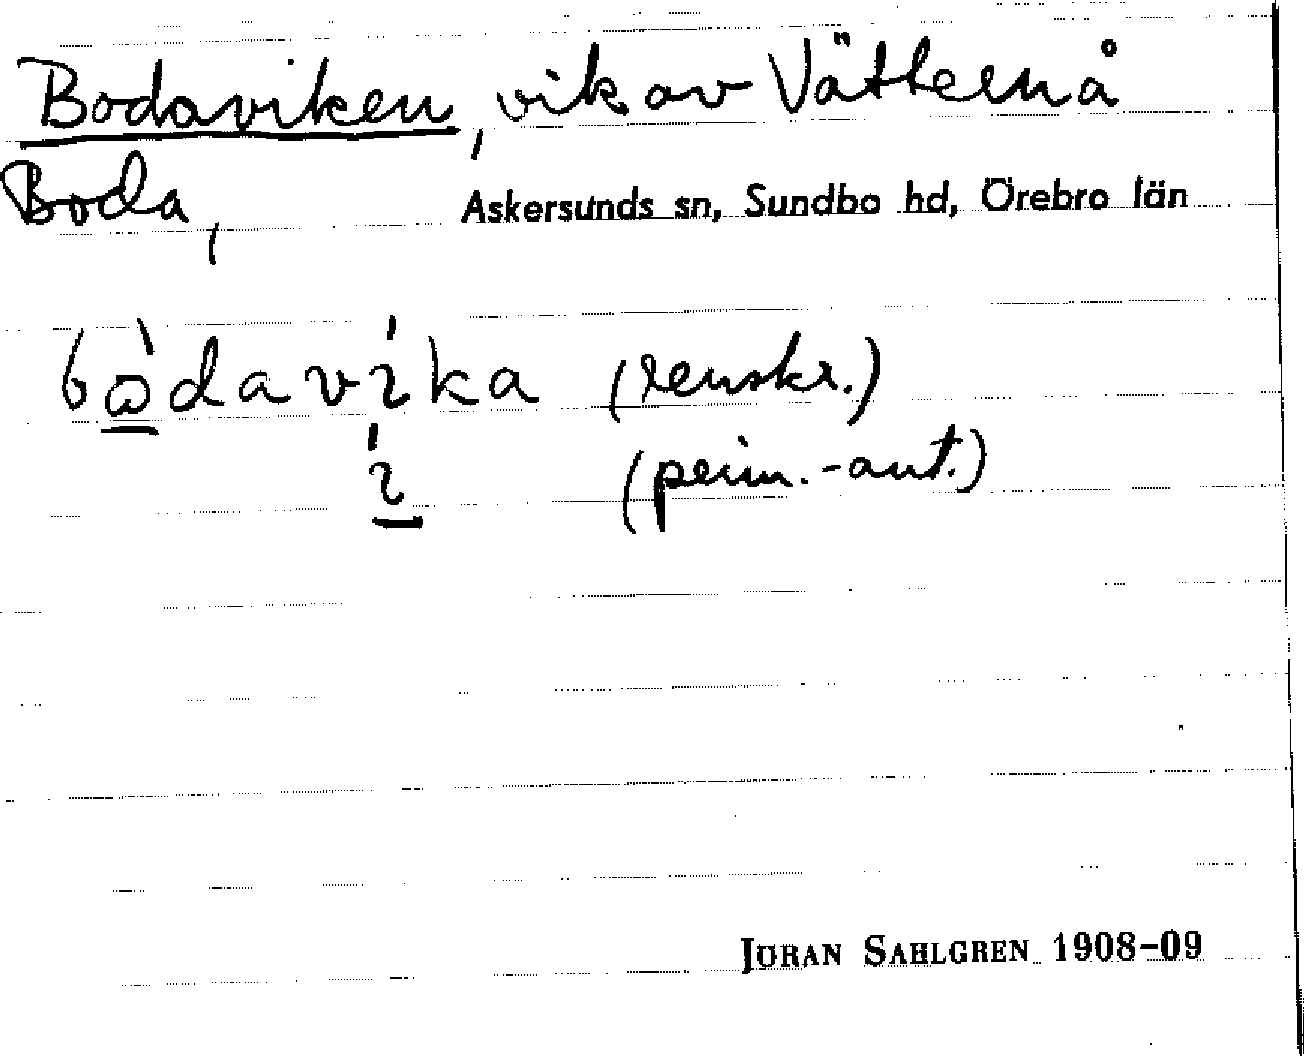 Bodaviken, vik av Vättern å
Boda, Askersunds sn, Sundbo hd, Örebro län
bⱺ̠̀davı́ka (renskr.)
ı̠́ (prim.-ant.)
JÖRAN SAHLGREN 1908-09